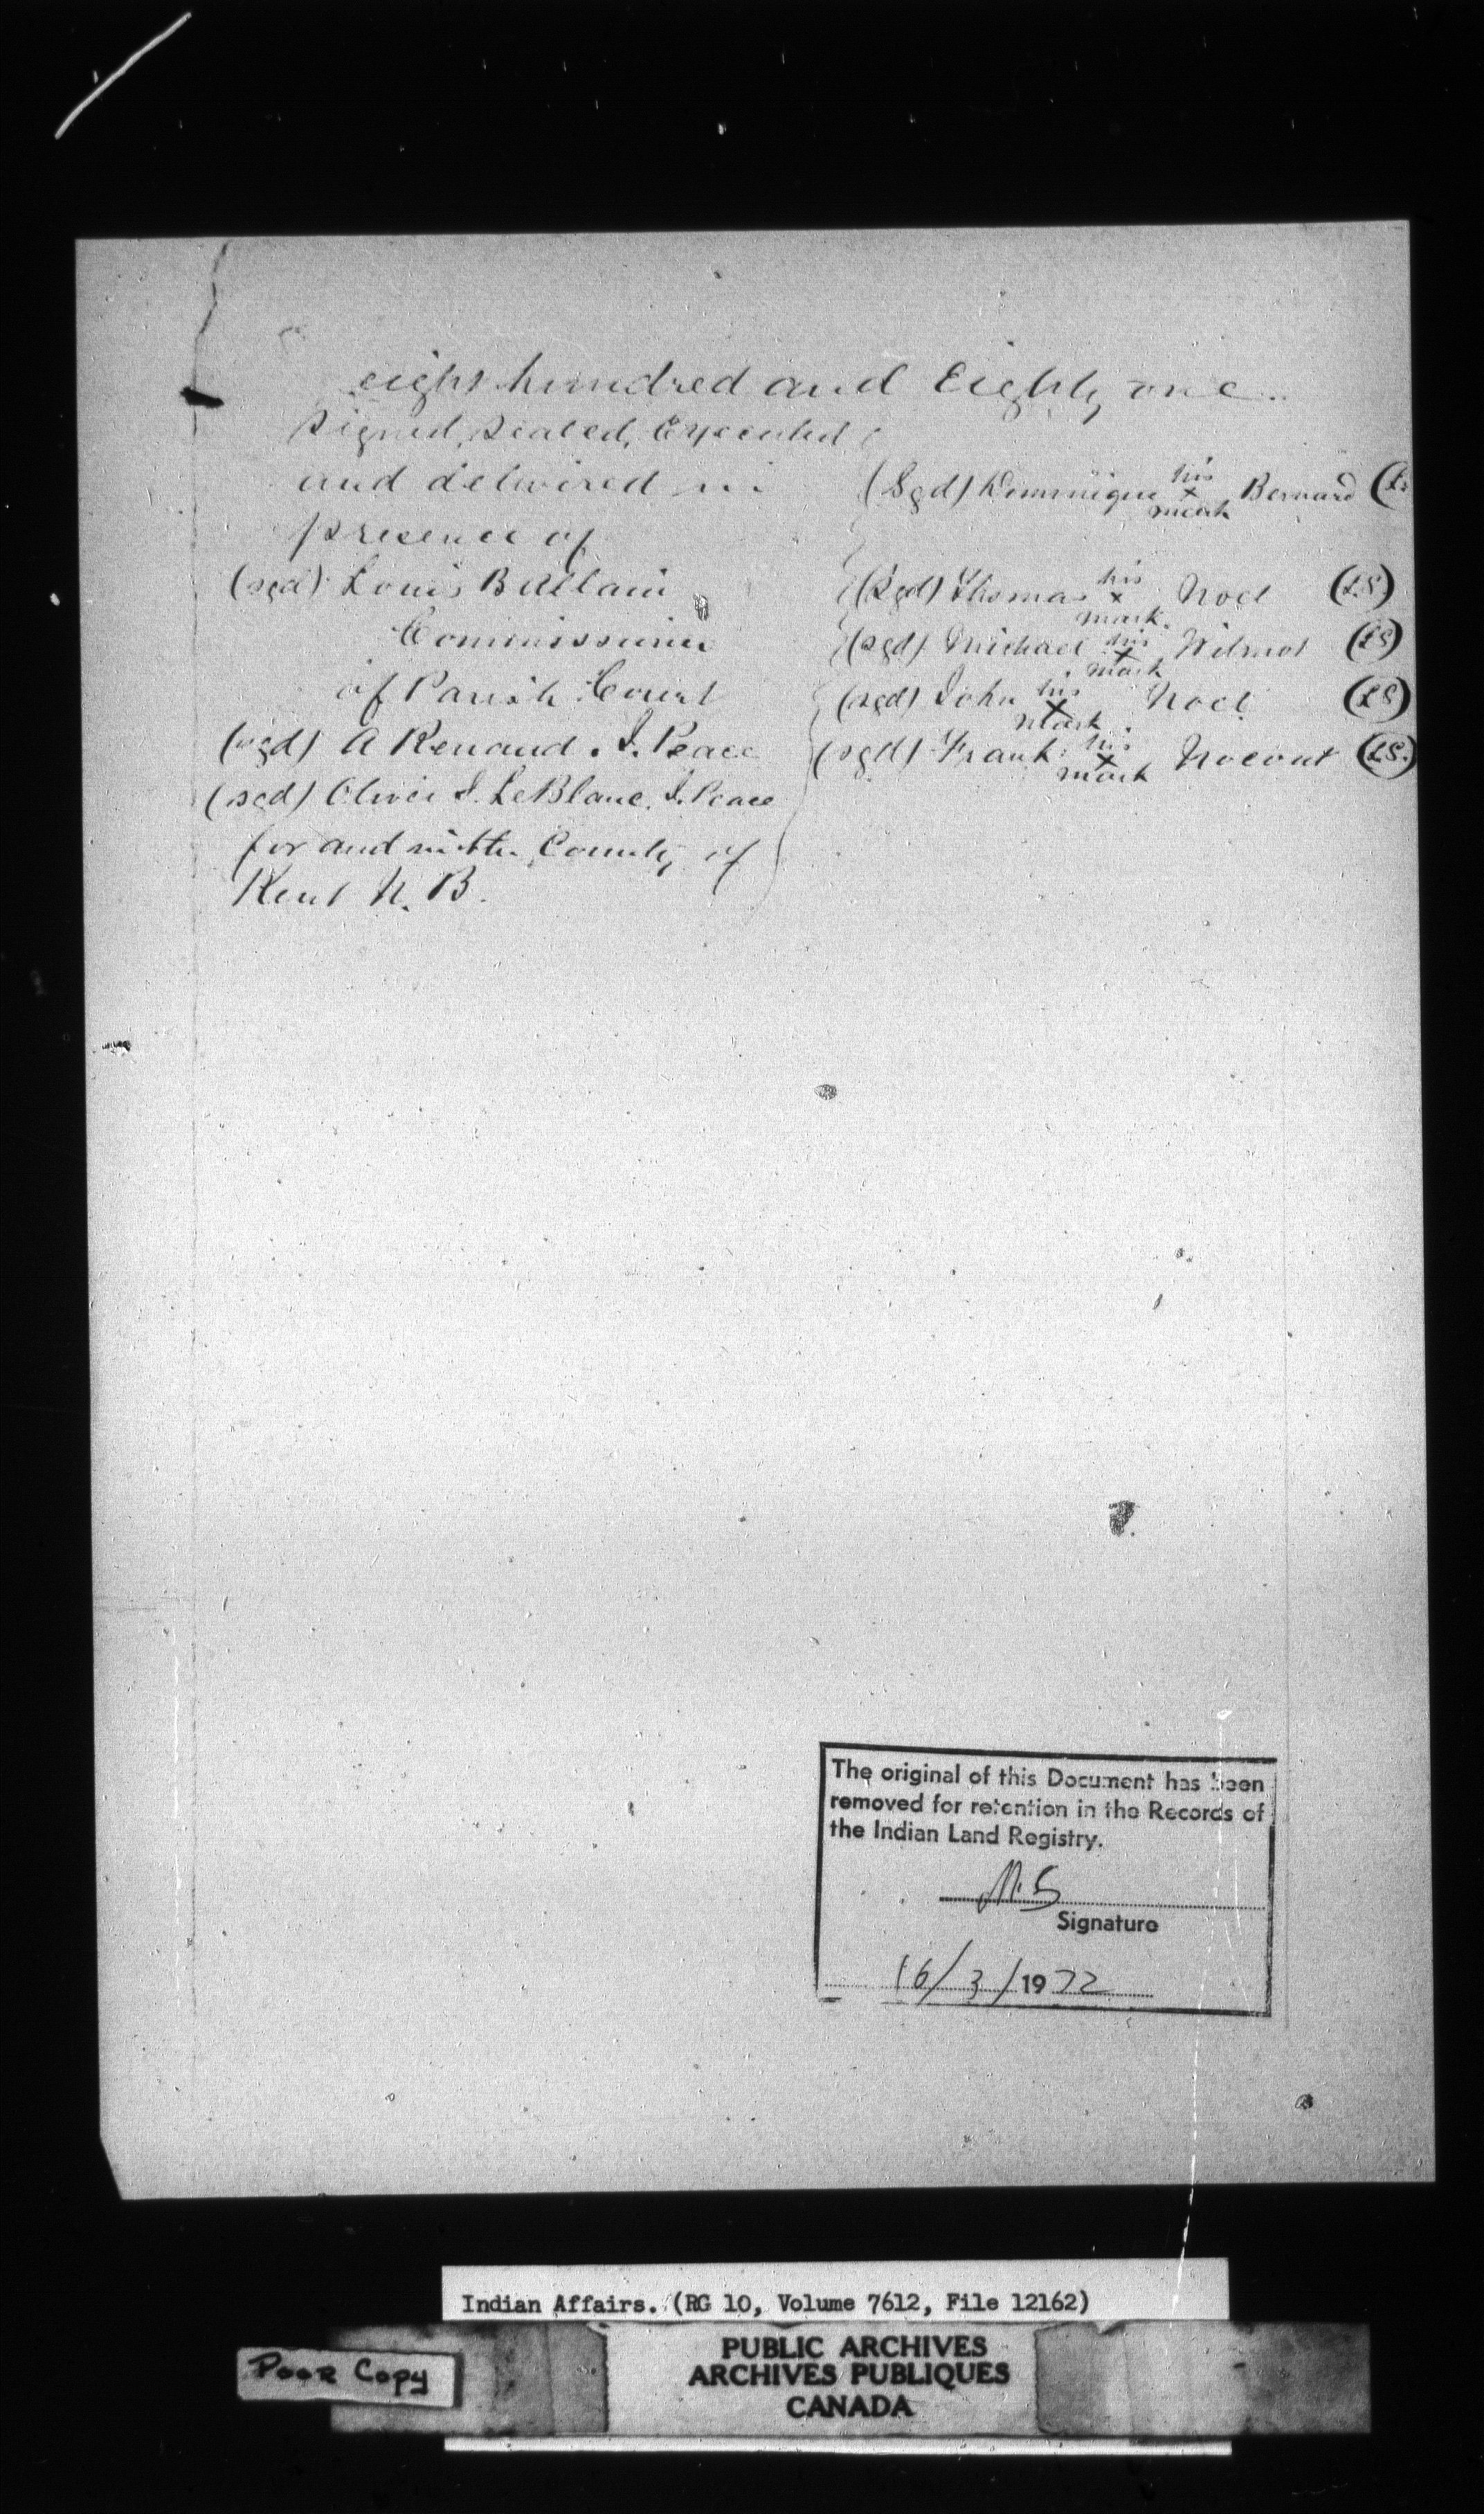 eight hundred and Eighty one
Signed, Sealed, Executed
and delivered in
presence of
(sgd) Louis
Commissioner
of Parish Court
(sgd) A Renaud. J. Peace
(sgd) Olivier J. LeBlanc. J. Peace
for and in the County of
Kent N. B.
(Sgd) Dominique his x mark Bernard (L.
(Sgd) Thomas his x mark. Noel (LS)
(sgd) Michael his x mark Wilmot (LS)
(sgd) John his x mark. Noel (LS)
(sgd) Frank his x mark Nocout (LS.)
The original of this Document has been
removed for retention in the Records of
the Indian Land Registry.
Signature
16/3/1972
Indian Affairs. (RG 10, Volume 7612, File 12162)
PUBLIC ARCHIVES
ARCHIVES PUBLIQUES
CANADA
Poor Copy